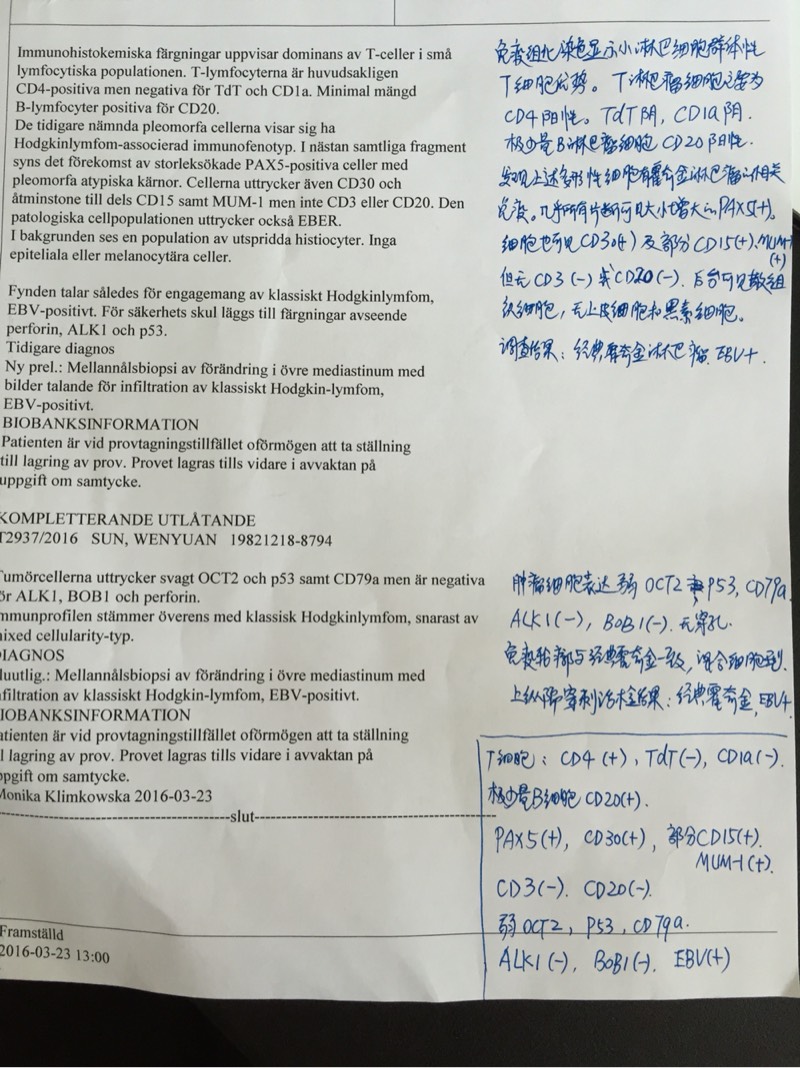 Immunohistokemiska färgningar uppvisar dominans av T-celler i små
lymfocytiska populationen. T-lymfocyterna är huvudsakligen
CD4-positiva men negativa för TdT och CD1a. Minimal mängd
B-lymfocyter positiva för CD20.
De tidigare nämnda pleomorfa cellerna visar sig ha
Hodgkinlymfom-associerad immunofenotyp. I nästan samtliga fragment
syns det förekomst av storleksökade PAX5-positiva celler med
pleomorfa atypiska kärnor. Cellerna uttrycker även CD30 och
åtminstone till dels CD15 samt MUM-1 men inte CD3 eller CD20. Den
patologiska cellpopulationen uttrycker också EBER.
I bakgrunden ses en population av utspridda histiocyter. Inga
epiteliala eller melanocytära celler.
Fynden talar således för engagemang av klassiskt Hodgkinlymfom,
EBV-positivt. För säkerhets skul läggs till färgningar avseende
perforin, ALK1 och p53.
Tidigare diagnos
Ny prel.: Mellannålsbiopsi av förändring i övre mediastinum med
bilder talande för infiltration av klassiskt Hodgkin-lymfom,
EBV-positivt.
BIOBANKSINFORMATION
Patienten är vid provtagningstillfället oförmögen att ta ställning
till lagring av prov. Provet lagras tills vidare i avvaktan på
uppgift om samtycke.
KOMPLETTERANDE UTLÅTANDE
T2937/2016 SUN, WENYUAN 19821218-8794
Tumörcellerna uttrycker svagt OCT2 och p53 samt CD79a men är negativa
ör ALK1, BOB1 och perforin.
mmunprofilen stämmer överens med klassisk Hodgkinlymfom, snarast av
ixed cellularity-typ.
IAGNOS
luutlig.: Mellannålsbiopsi av förändring i övre mediastinum med
nfiltration av klassiskt Hodgkin-lymfom, EBV-positivt.
IOBANKSINFORMATION
atienten är vid provtagningstillfället oförmögen att ta ställning
l lagring av prov. Provet lagras tills vidare i avvaktan på
pgift om samtycke.
Monika Klimkowska 2016-03-23
slut
Framställd
2016-03-23 13:00
免疫组化染色显示小淋巴细胞群体性
T细胞优势。T淋巴瘤细胞主要为
CD4阳性。TdT阴, CD1a阴.
极少量B淋巴瘤细胞CD20阳性.
发现上述多形性细胞有霍奇金淋巴瘤的相关
免疫。几乎所有片断可见大小增大的PAX5(+).
细胞也可见CD30(+)及部分CD15(+).MUM-1
(+)
但无CD3(-)或CD20(-). 后台可见散组
织细胞, 无上皮细胞和黑素细胞。
调查结果: 经典霍奇金淋巴瘤. EBV+.
肿瘤细胞表达弱OCT2 P53, CD79a.
ALK1(-), BOB1(-). 无穿孔.
免疫轮廓与经典霍奇金一致, 混合细胞型.
上纵隔穿刺活检结果: 经典霍奇金, EBV+.
T细胞: CD4(+), TdT(-), CD1a(-).
极少量B细胞CD20(+).
PAX5(+), CD30(+), 部分CD15(+).
MUM-1(+).
CD3(-). CD20(-).
弱OCT2, P53, CD79a.
ALK1(-), BOB1(-). EBV(+)